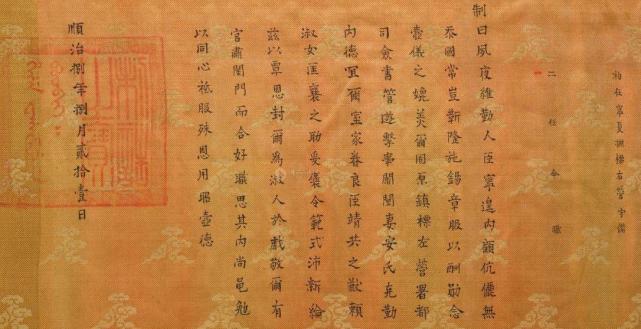 初任寧夏撫標右營守備
二任今職
制曰夙夜維勤人臣寧遑內顧伉儷無
忝國常豈靳隆施錫章服以酬勛念
壼儀之媲美爾固原鎮標左營署都
司僉書管遊擊事閆閏妻安氏克勤
內德宜爾室家眷良臣靖共之猷賴
淑女匡襄之助爰褒令範式沛新綸
茲以覃恩封爾為淑人於戲敬爾有
官肅閨門而合好職思其內尚黽勉
以同心祗服殊恩用昭壼德
順治捌年捌月貳拾壹日